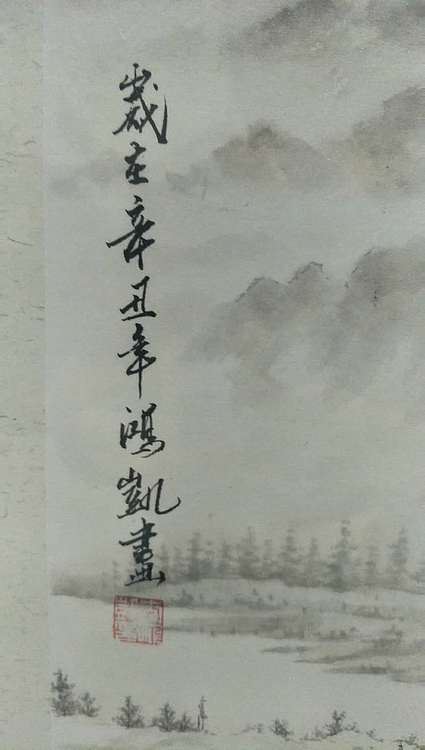 歲在辛丑年鴻凱畫